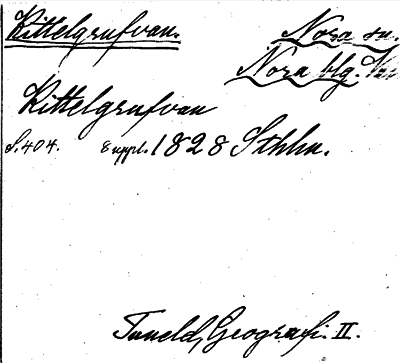 Kittelgrufvan.
Nora sn.
Nora blg.
Kittelgrufvan
S. 404. Suppl. 1828 Sthlm.
Tuneld, Geografi. II.